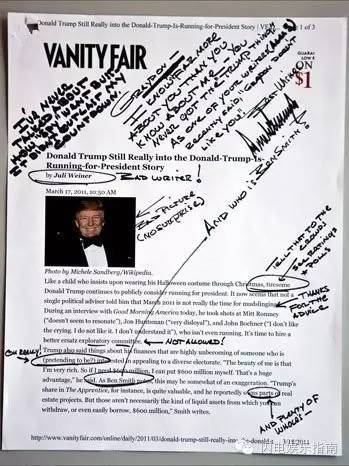 Donald Trump Still Really into the Donald-Trump-Is-Running-for-President Story | VF
e 1 of 3
VANITY FAIR
GUARAI
LOW R
ON
$1
I'VE NEVER
TALKED ABOUT
GRAYDON—
I KNOW FAR MORE
ABOUT YOU THAN YOU
KNOW ABOUT ME. YOU
NEVER GOT THE "TRUMP THING"
AS ONE OF YOUR WRITERS
RECENTLY SAID, "GRAYDON DOESN'T
LIKE YOU."
BEST WISHES
Donald Trump Still Really into the Donald-Trump-Is-
Running-for-President Story
by Juli Weiner
BAD WRITER!
March 17, 2011, 10:50 AM
BAD PICTURE
(NO SURPRISE)
AND WHO IS BEN SMITH?
TELL THAT TO THE
& POLLS
Photo by Michele Sandberg/Wikipedia.
Like a child who insists upon wearing his Halloween costume through Christmas, tiresome
Donald Trump continues to publicly consider running for president. It now seems that not a
single political adviser told him that March 2011 is not really the time for mudslinging.
THANKS
FOR THE
ADVICE
During an interview with Good Morning America today, he took shots at Mitt Romney
("doesn't seem to resonate"), Jon Huntsman ("very disloyal"), and John Boehner ("I don't like
the crying. I do not like it. I don't understand it"), who isn't even running. It's time to hire a
better ersatz exploratory committee.
NOT ALLOWED!
OH REALLY!
Trump also said things about his finances that are highly unbecoming of someone who is
(pretending to be?) interested in appealing to a diverse electorate. "The beauty of me is that
I'm very rich. So if I need $600 million, I can put $600 million myself. That's a huge
advantage," he said. As Ben Smith notes, this may be somewhat of an exaggeration. "Trump's
share in The Apprentice, for instance, is quite valuable, and he reportedly owns parts of real
estate projects. But those aren't necessarily the kind of liquid assets from which you can
withdraw, or even easily borrow, $600 million," Smith writes.
AND PLENTY OF
WHOLES!—
http://www.vanityfair.com/online/daily/2011/03/donald-trump-still-really-into-the-donald-t
3/18/2011
闪电娱乐指南